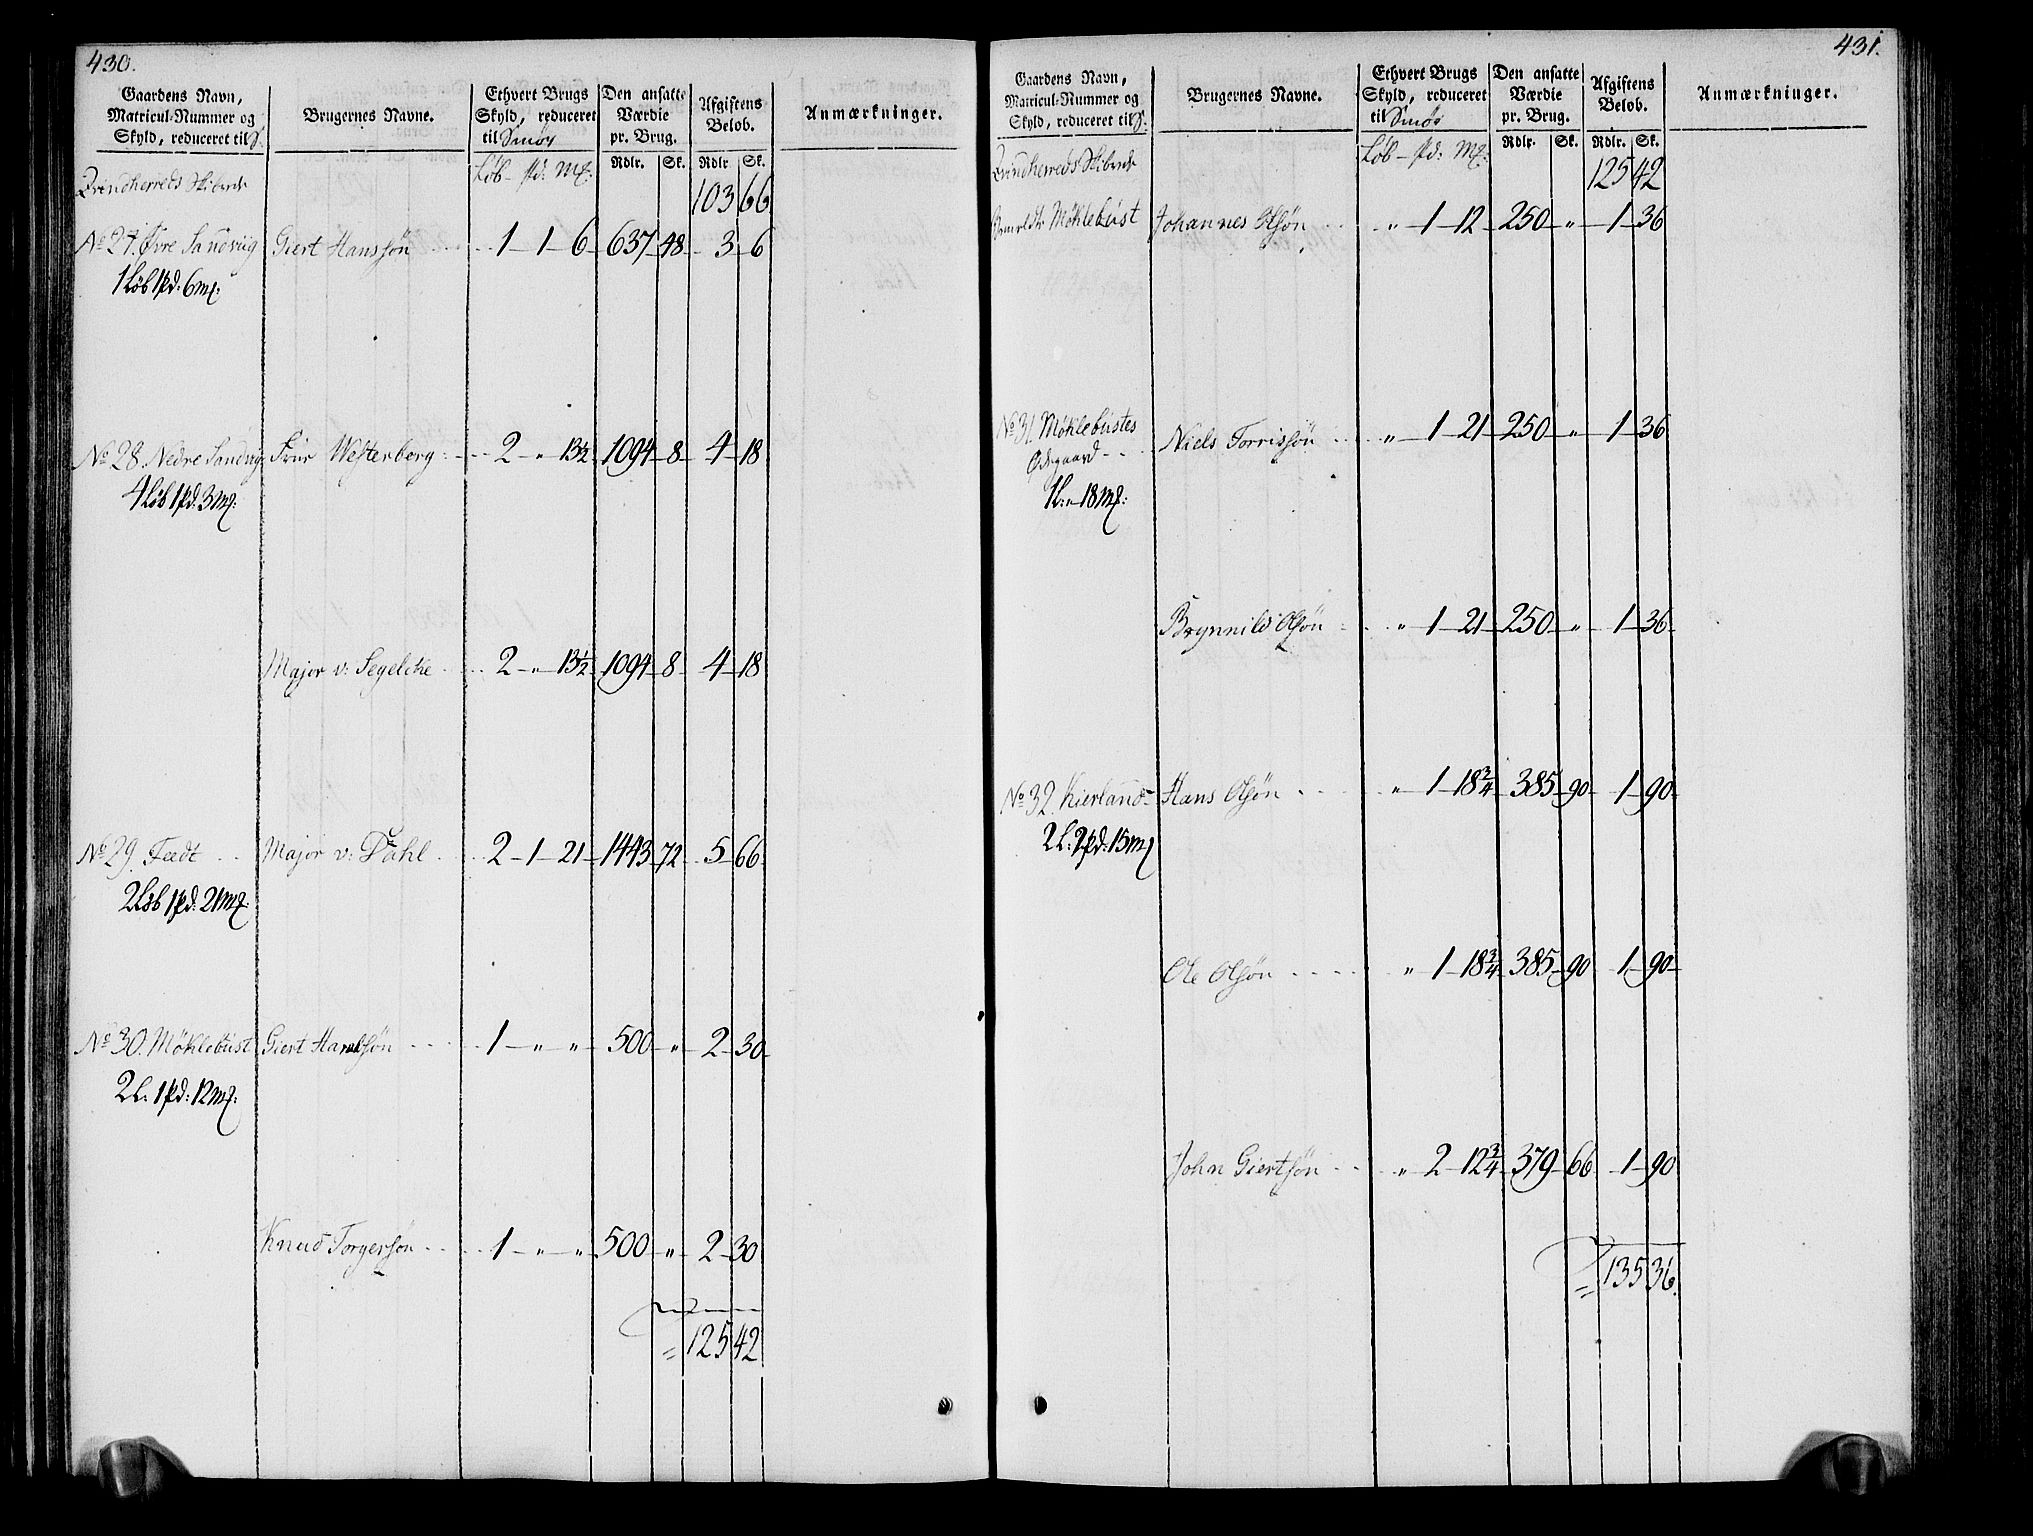 430.
Gaardens Navn, Matricul-Nummer og Skyld, reduceret til S.
Brugernes Navne.
Ethvert Brugs Skyld, reduceret til Smör
Den ansatte Værdie pr. Brug.
Afgiftens Belob.
Anmærkninger.
Löb - Pd: Mf:
Rdlr. Sk. Rdlr. Sk.
Qvindherreds Skibrede 103 66
No 27. Øvre Sandviig Giert Hanssøn 1 - 1 - 6 - 637 - 48 - 3 - 6
1 Løb 1 Pd: 6 mf:
No 28. Nedre Sandvig Frue Westerberg 2 - " 13½ 1094 - 8 - 4 - 18
4 Løb 1 Pd: 3 mf:
Major v: Segelcke 2 - " 13½ 1094 - 8 - 4 - 18
No 29. Feedt Major v: Dahl 2 - 1 - 21 - 1443 - 72 - 5 - 66
2 Løb 1 Pd: 21 mf:
No 30. Møhlebust Giert Haralssøn 1 - " - " 500 - " 2 - 30
2 L: 1 Pd: 12 mf:
Knud Torgersøn 1 - " - " 500 - " 2 - 30
= 125 42
431.
Gaardens Navn, Matricul-Nummer og Skyld, reduceret til S.
Brugernes Navne.
Ethvert Brugs Skyld, reduceret til Smör
Den ansatte Værdie pr. Brug.
Afgiftens Belob.
Anmærkninger.
Löb - Pd: Mf:
Rdlr. Sk. Rdlr. Sk.
Qvindherreds Skibrede 125 42
Møhlebust Johannes Olsøn " 1 - 12 250 - " 1 - 36
No 31. Møhlebustes Niels Torrissøn " 1 - 21 - 250 - " 1 - 36
Ødegaard
1 L: " 18 mf:
Brynnild Olsøn " 1 - 21 - 250 - " 1 - 36
No 32. Kierland Hans Olsøn " 1 - 18¾ 385 - 90 1 - 90
2 L: 2 Pd: 15 mf
Ole Olsøn " 1 - 18¾ 385 - 90 1 - 90
John Giertsøn " 2 - 12¾ 379 - 66 1 - 90
= 135 36.